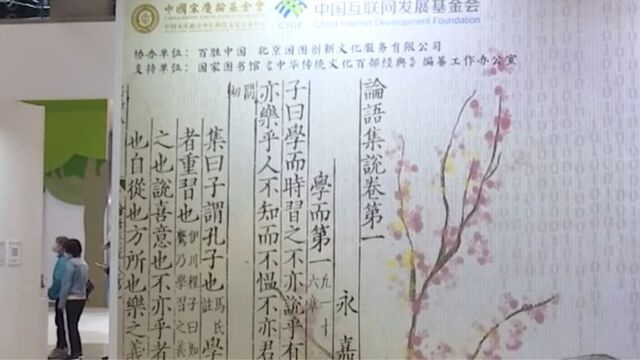 中國宋慶齡基金會
CIDF
中国互联网发展基金会
China Internet Development Foundation
协办单位：百胜中国 北京国图创新文化服务有限公司
支持单位：国家图书馆《中华传统文化百部经典》编纂工作办公室
論語集說卷第一
永嘉
學而第一 凡一十六章
子曰學而時習之不亦說乎有
亦樂乎人不知而不慍不亦君
集曰子謂孔子也馬氏註學
者重習也伊川程子曰如鷹乃學習之義
之也說喜意也不亦乎者
也自從也方所也樂之義